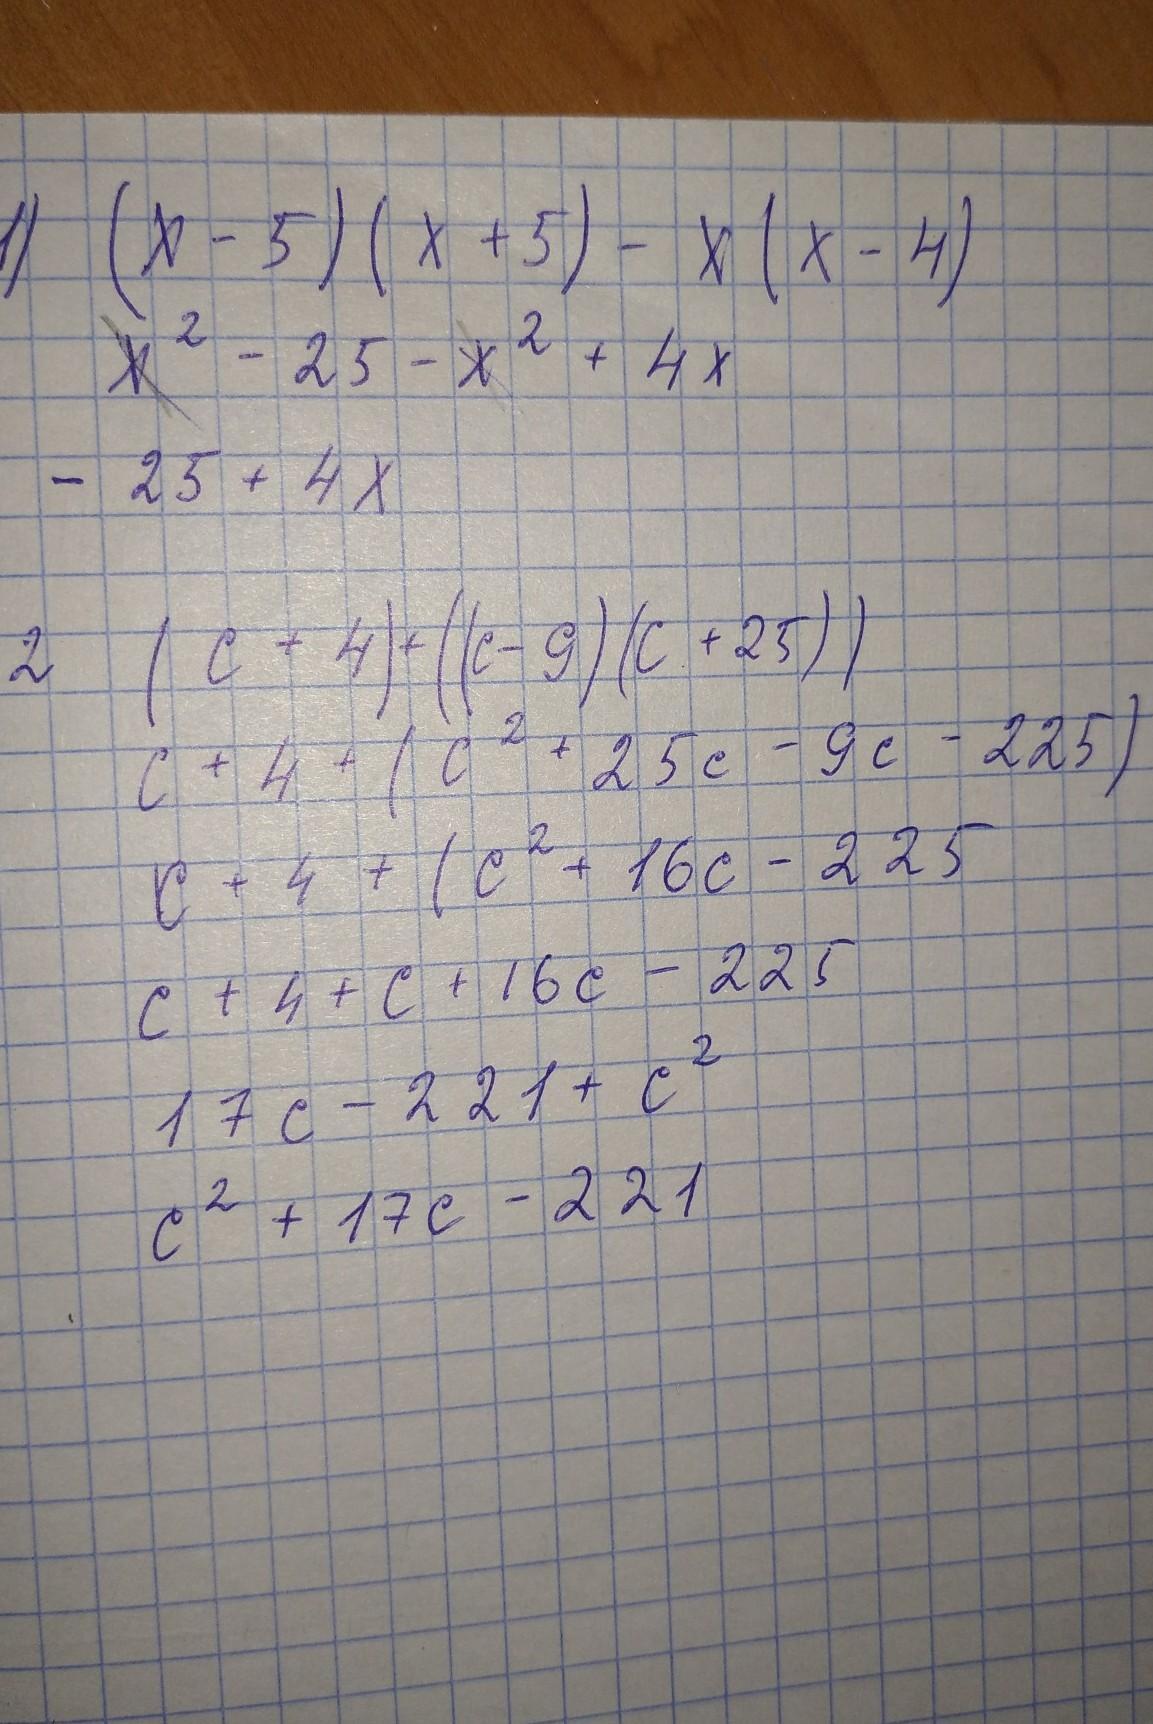 1) (x - 5)(x + 5) - x(x - 4)
x² - 25 - x² + 4x
- 25 + 4x
2 (c + 4)+((c-9)(c+25))
c + 4 + (c² + 25c - 9c - 225)
c + 4 + (c² + 16c - 225
c + 4 + c + 16c - 225
17c - 221 + c²
c² + 17c - 221